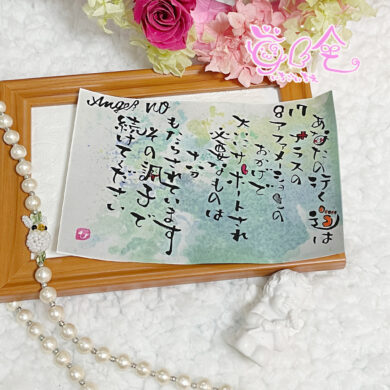 Angel NO
817
あなたの行く道は
プラスの
アファメーションの
おかげで
大いにサポートされ
必要なものは
十分
もたらされています
その調子で
続けてください